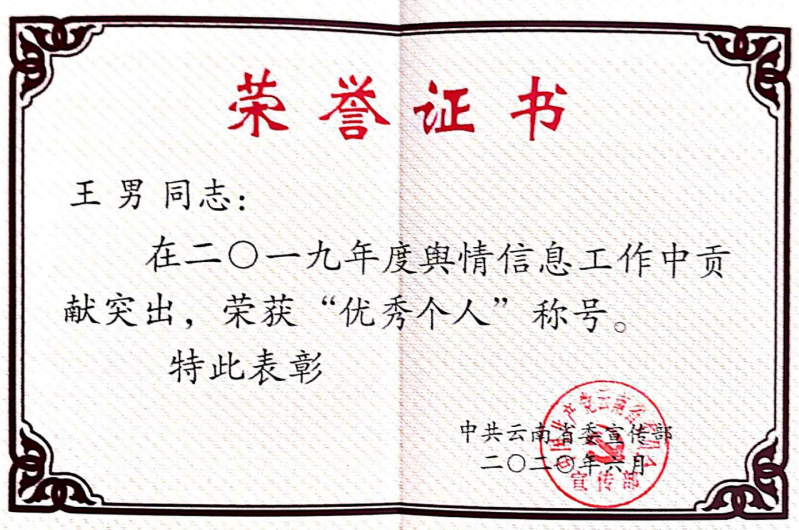 荣誉证书
王男同志：
在二〇一九年度舆情信息工作中贡
献突出，荣获“优秀个人”称号。
特此表彰
中共云南省委宣传部
二〇二〇年六月
中国共产党云南省委员会
宣传部